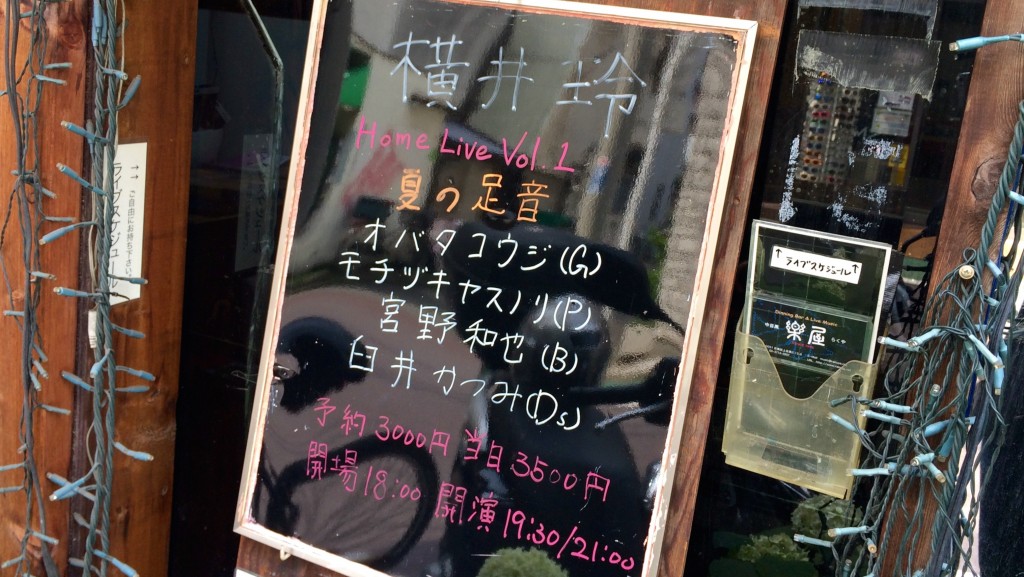 横井 玲
Home Live Vol.1
夏の足音
オバタコウジ(G)
モチヅキヤスノリ(P)
宮野和也(B)
臼井かつみ(Ds)
予約3000円 当日3500円
開場18:00 開演19:30/21:00
↑↑ご自由にお持ち下さい。
ライブスケジュール
↑ライブスケジュール↑
Dining Bar & Live Music
楽屋
らくや